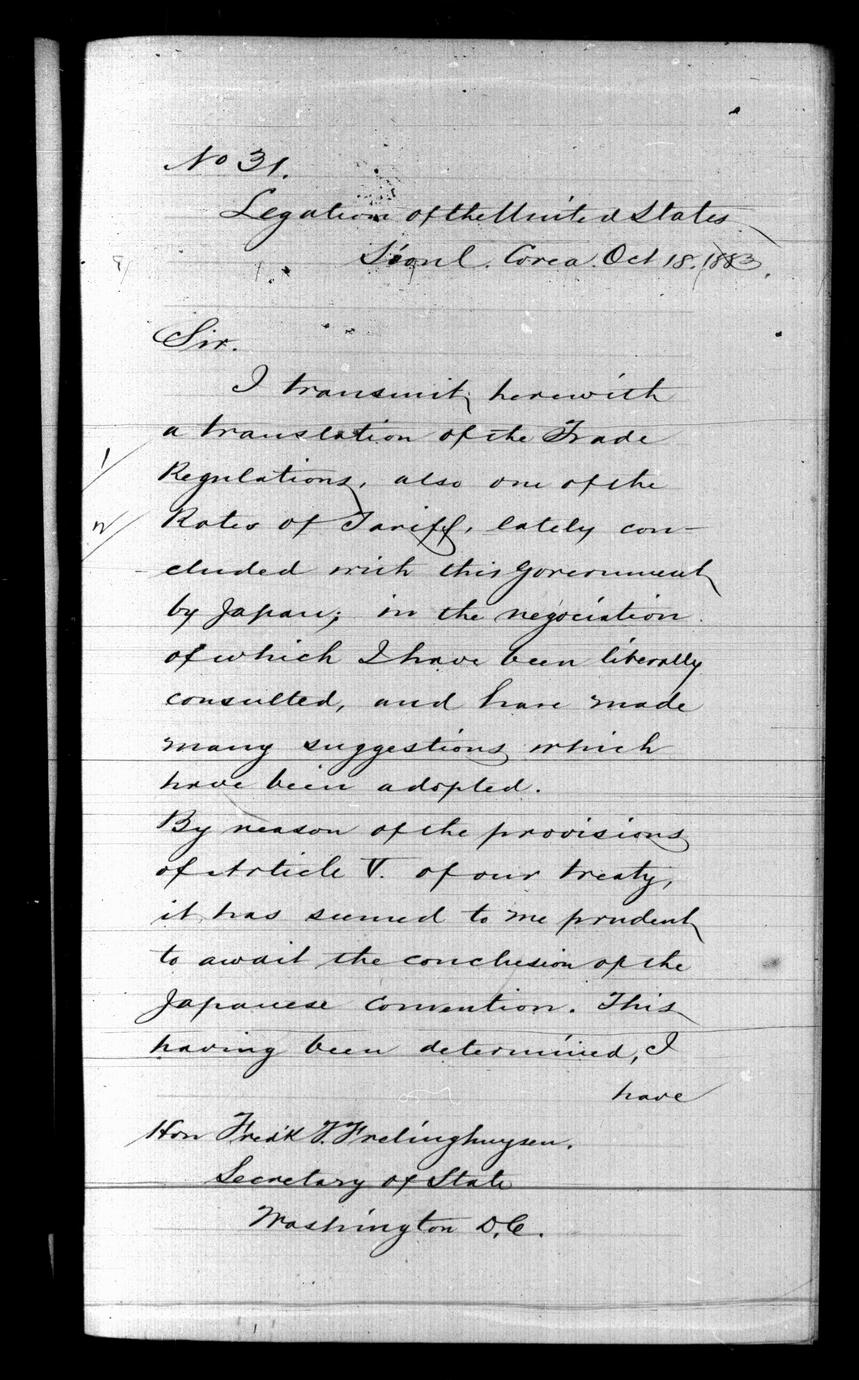 No 31.
Legation of the United States
Söoul. Corea. Oct 18. 1883.
Sir.
I transmit herewith
a translation of the Trade
Regulations, also one of the
Rates of Tariff, lately con-
cluded with this Government
by Japan; in the negociation
of which I have been liberally
consulted, and have made
many suggestions which
have been adopted.
By reason of the provisions
of Article V. of our treaty,
it has seemed to me prudent
to await the conclusion of the
Japanese Convention. This
having been determined, I
have
Hon Fredk T. Frelinghuysen.
Secretary of State
Washington D.C.